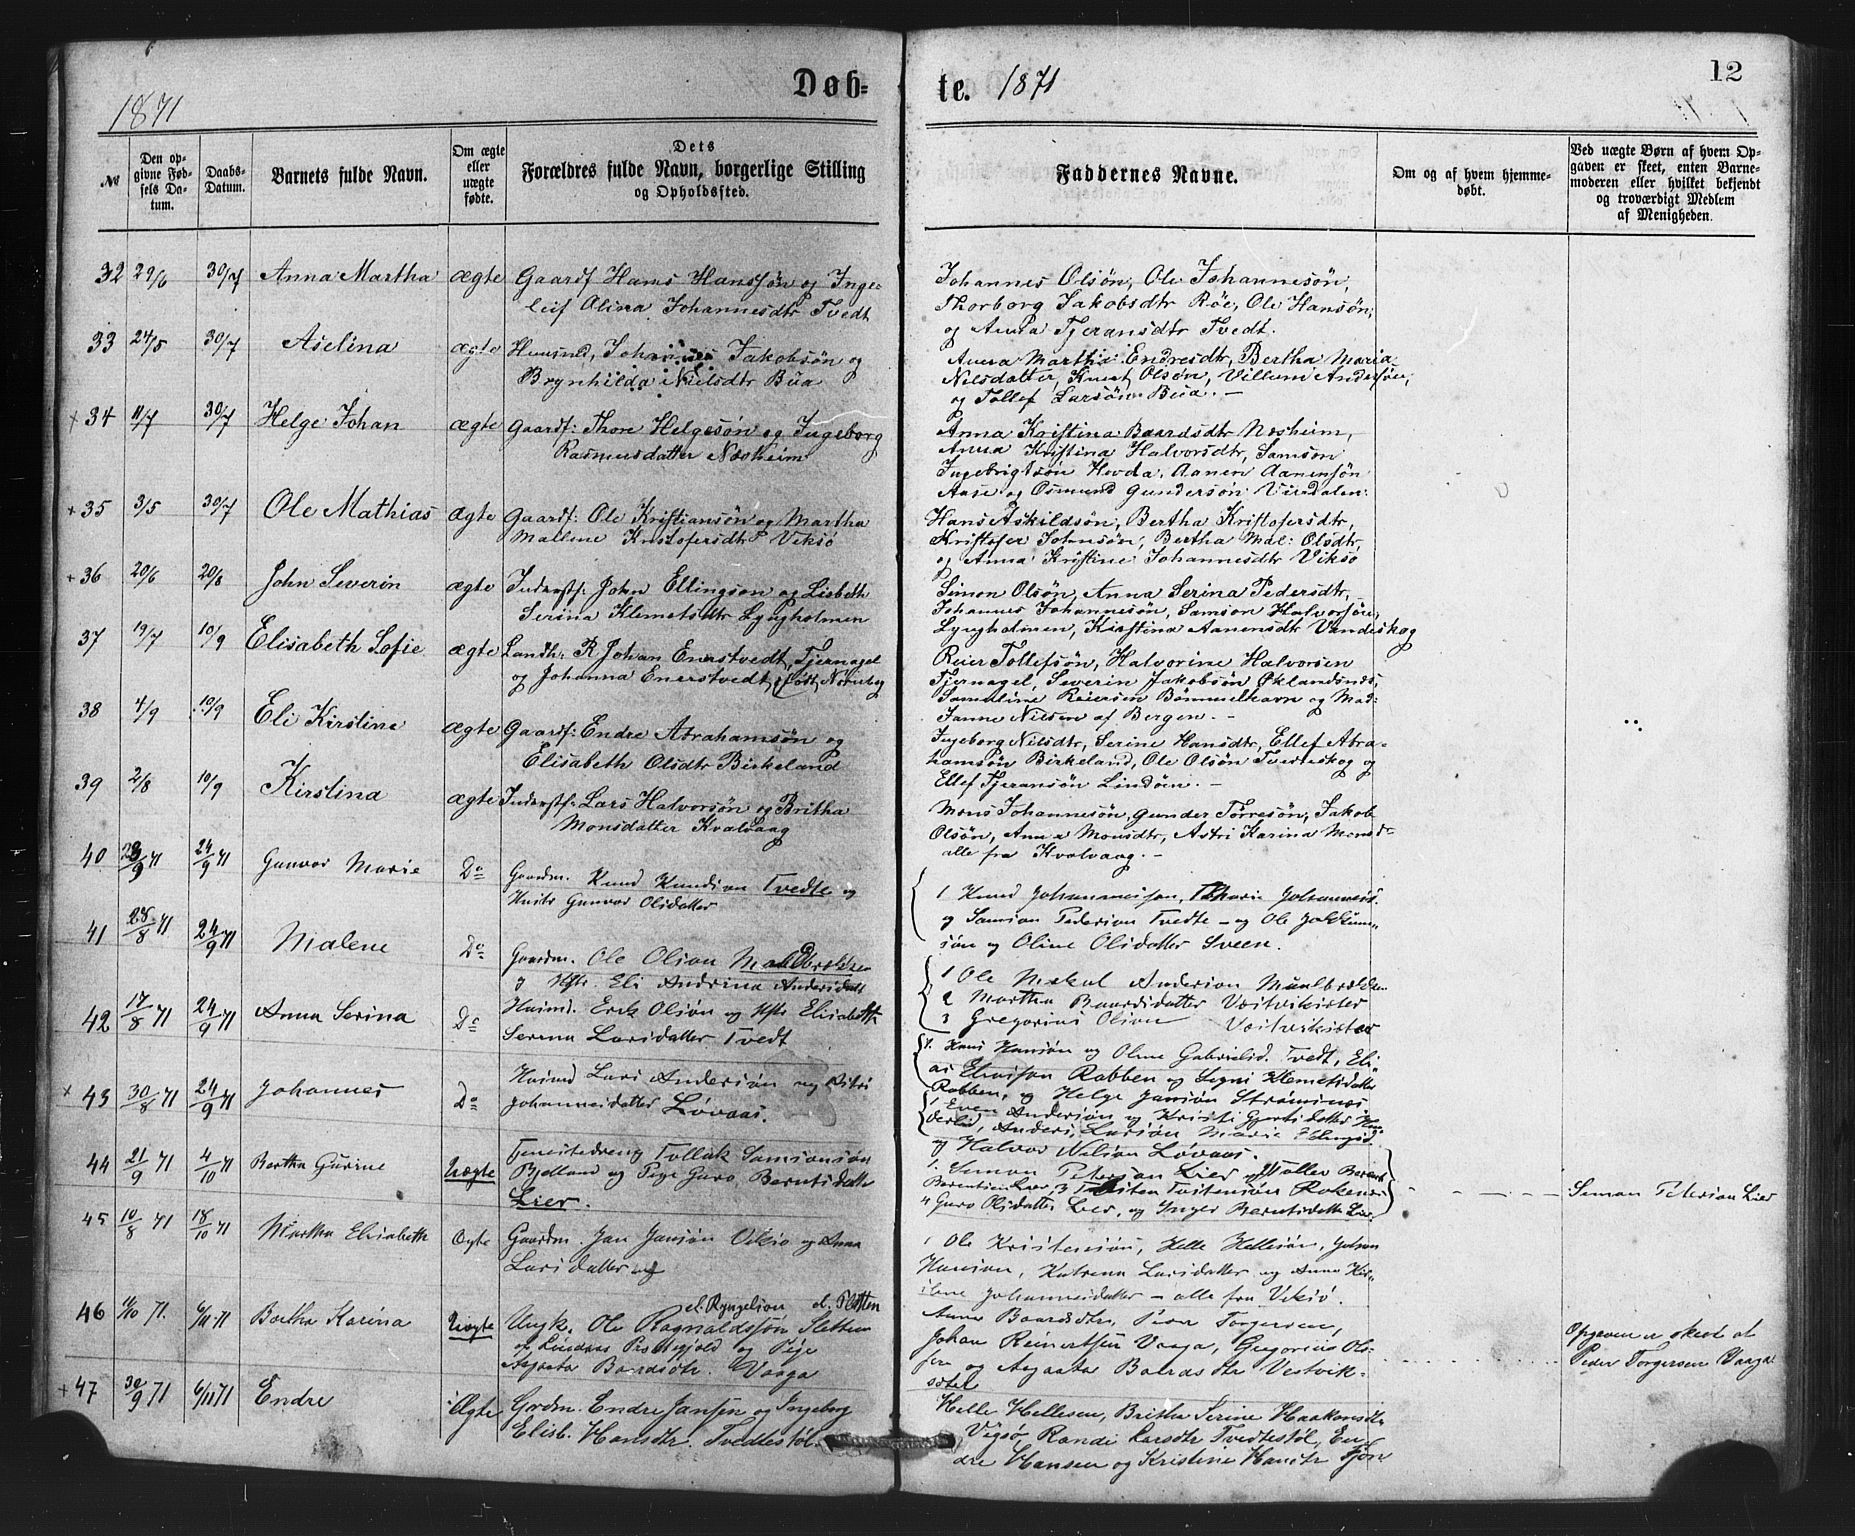 1871
Døb-
te. 1871
12
No
Den opgivne Fødsels Datum.
Daabs-Datum.
Barnets fulde Navn.
Om ægte eller uægte fødte.
Dets Forældres fulde Navn, borgerlige Stilling og Opholdssted.
Faddernes Navne.
Om og af hvem hjemmedøbt.
Ved uægte Børn af hvem Opgaven er skeet, enten Barnemoderen eller hvilket bekjendt og troværdigt Medlem af Menigheden.
32 29/6 30/7 Anna Martha ægte Gaardf Hans Hanssøn og Inge-
leif Olina Johannesdtr Tvedt
Johannes Olsøn, Ole Johannesøn,
Thorborg Jakobsdtr Røe, Ole Hansøn,
og Anna Tjeransdtr Tvedt.
33 24/5 30/7 Aselina ægte Huusmd, Johannes Jakobsøn og
Brynhilda Nielsdtr Bua
Anna Martha Endresdtr, Bertha Maria
Nilsdatter, Knut Olsøn, Villum Andersøn,
og Tollef Larsøn Bua. -
+ 34 11/7 30/7 Helge Johan ægte Gaardf: Thore Helgesøn og Ingeborg
Rasmusdatter Næsheim
Anna Kristina Baardsdtr Næsheim,
Anna Kristina Halvorsdtr, Samson
Ingebrigtsøn Hovda, Aanen Aanensøn
Aase og Osmund Gundersøn Viredalen.
+ 35 3/5 30/7 Ole Mathias ægte Gaardf: Ole Kristiansøn og Martha
Mallene Kristofersdtr Veksø
Hans Askildsøn, Bertha Kristofersdtr,
Kristofer Johnsøn, Bertha Mal: Olsdtr
og Anna Kristine Johannesdtr Viksø
+ 36 20/6 20/8 John Severin ægte Inderstf: John Ellingsøn og Lisbeth
Serina Klemetsdtr Lyngholmen
Simon Olsøn, Anna Serina Pedersdtr,
Johannes Johannesøn, Samson Halvorsøn,
Lyngholmen, Kirstina Aanensdtr Vandeskog
37 19/7 10/9 Elisabeth Sofie ægte Landh: R Johan Enerstvedt, Tjernagel
og Johanna Enerstvedt, født Nornberg
Reier Tollefsøn, Halvorine Halvorsen
Tjernagel, Severin Jakobsøn Øklandsnes,
Samuline Reiersen Bømmelhavn og Mad:
Janne Nilsen af Bergen. -
38 4/9 10/9 Eli Kirstine ægte Gaardf: Endre Abrahamsøn og
Elisabeth Olsdtr Birkeland
Ingeborg Nilsdtr, Serine Hansdtr, Ellef Abra-
hamsøn Birkeland, Ole Olsøn Tverreskog og
Ellef Tjeransøn Lindøen. -
39 2/8 10/9 Kirstina ægte Inderstf: Lars Halvorsøn og Britha
Monsdatter Kvalvaag
Mons Johannesøn, Gunder Tørresøn, Jakob
Olsøn, Anna Monsdtr, Astri Karina Monsd-
alle fra Kvalvaag. -
40 23/9 71 24/9 71 Gunvor Marie Do Gaardm. Knud Knudsøn Tvedte og
Hustr Gunvor Olsdatter
1 Knud Johannessøn, Johannesd.
og Samson Pedersøn Tvedte - og Ole
søn og Oline Olsdatter Sveen.
41 28/8 71 24/9 71 Malene Do Gaardm. Ole Olson
og Hstr. Eli Andrina Andersdatt
1 Ole Mekal Anderson
2 Martha Baardsdatter
3 Gregorius Olson
42 17/8 71 24/9 71 Anna Serina Do Huusmd. Erik Olsøn og Hstr Elisabeth
Serena Larsdatter Tvedt
1. Hans Hansøn og Oline Gabrielsd. Tvedt, Eli-
as Eliassøn Rabben og Klemetsdatter
Rabben, og Helge Jansøn
+ 43 30/8 71 24/9 71 Johannes Do Huusmd Lars Andersøn og Astri
Johannesdatter Løvaas.
Even Andersøn og Kristi
Anders Larsøn, Marie
og Halvor Nilsøn Løvaas.
44 21/9 71 4/10 71 Bertha Gurine Uægte Tjenestedreng Tollak Samsonsøn
Bjelland og Pige Guro Berntsdatte
Lier.
1. Simon Peterson Lier og
Lier, 3
4 Guro Olsdatter Lier, og Inger Berntsdatte Lier.
Simon Peterson Lier
45 10/8 71 18/10 71 Martha Elisabeth Ægte Gaardm. Jan Jansøn Viksø og Anna
Larsdatter
1 Ole Kristensøn, Helle Hellesøn,
Hanson, Katrena Larsdatter og Anna Kir-
stine Johannesdatter - alle fra Viksø.
46 71. 6/11 71 Bertha Karina Uægte Ungk. Ole Ragnaldssøn Sletten
el. Ryngelson el. Fletten
af Lindaas Præstegjeld og Pige
Agaata Baardsdtr. Vaaga
Anna Baardsdtr, Peder Torgersen,
Johan Reinertsen Vaaga, Gregorius Ol-
sen og Agaata Baardsdtr Vestvik-
sæter
Opgaven er skeet af
Peder Torgersen Vaaga
+ 47 30/9 71 6/11 71 Endre Ægte Grdm. Endre Jansen og Ingeborg
Elisb. Hansdtr. Tvedtestøl.
Helle Hellesen, Britha Serine Haakonsdtr
Vigsø, Randi Larsdtr Tvedtestøl, En-
dre Hansen og Kristine Hansdtr